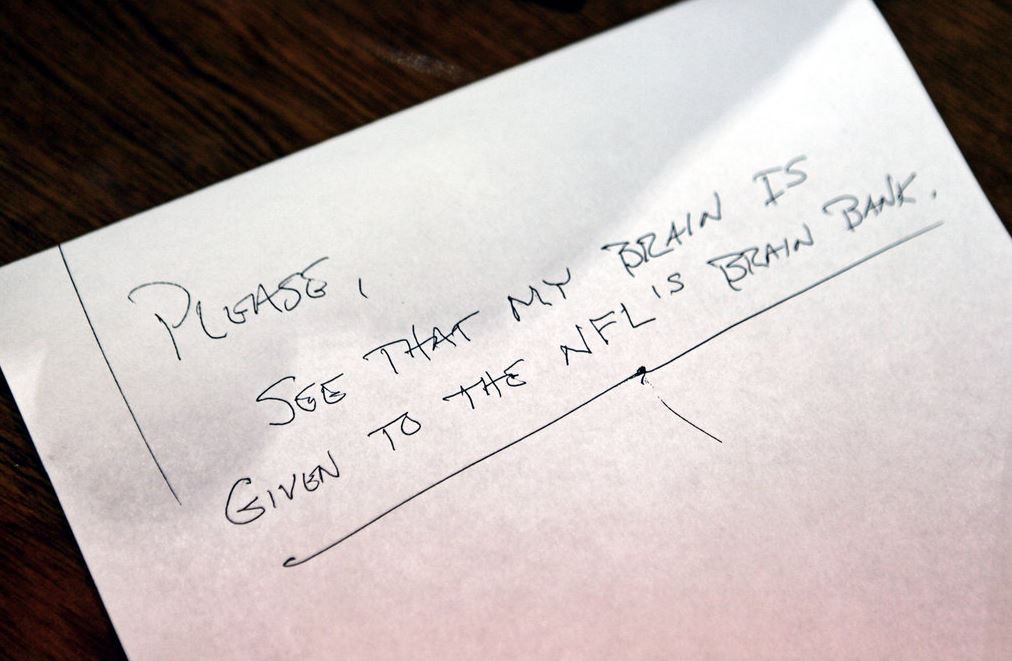 PLEASE,
SEE THAT MY BRAIN IS
GIVEN TO THE NFL'S BRAIN BANK.